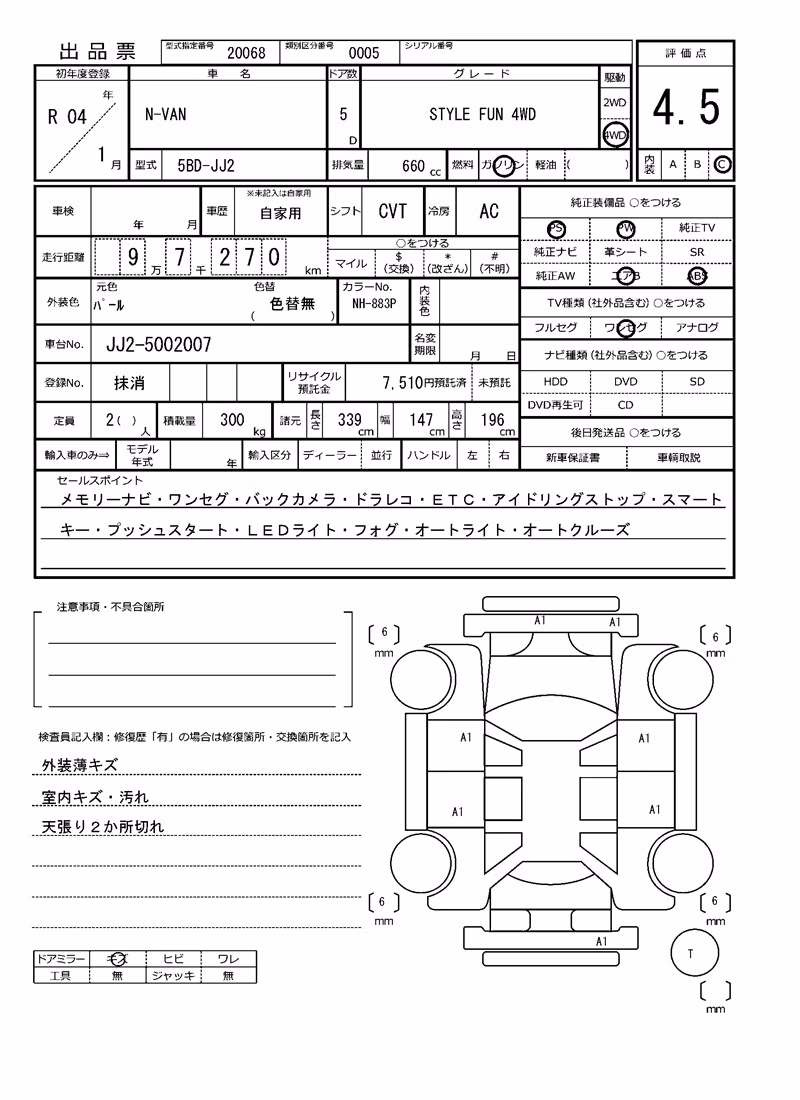 出品票 型式指定番号 20068 類別区分番号 0005 シリアル番号
評価点
初年度登録 車名 ドア数 グレード 駆動
R 04 年 N-VAN 5 D STYLE FUN 4WD 2WD 4.5
1 月 4WD
型式 5BD-JJ2 排気量 660 cc 燃料 ガソリン 軽油 ( ) 内装 A B C
車検 年 月 車歴 ※未記入は自家用 自家用 シフト CVT 冷房 AC 純正装備品 ○をつける
PS PW 純正TV
走行距離 9 万 7 千 2 7 0 km ○をつける 純正ナビ 革シート SR
マイル $ (交換) * (改ざん) # (不明) 純正AW エアB ABS
外装色 元色 パール 色替 ( 色替無 ) カラーNo. NH-883P 内装色 TV種類(社外品含む)○をつける
フルセグ ワンセグ アナログ
車台No. JJ2-5002007 名変期限 月 日 ナビ種類(社外品含む)○をつける
登録No. 抹消 リサイクル預託金 7,510円預託済 未預託 HDD DVD SD
DVD再生可 CD
定員 2( ) 人 積載量 300 kg 諸元 長さ 339 cm 幅 147 cm 高さ 196 cm 後日発送品 ○をつける
輸入車のみ⇒ モデル年式 年 輸入区分 ディーラー 並行 ハンドル 左 右 新車保証書 車輌取説
セールスポイント
メモリーナビ・ワンセグ・バックカメラ・ドラレコ・ETC・アイドリングストップ・スマート
キー・プッシュスタート・LEDライト・フォグ・オートライト・オートクルーズ
注意事項・不具合箇所
A1 A1
6 mm 6 mm
検査員記入欄：修復歴「有」の場合は修復箇所・交換箇所を記入
A1 A1
外装薄キズ
室内キズ・汚れ
A1 A1
天張り２か所切れ
6 mm 6 mm
A1
T
ドアミラー キズ ヒビ ワレ
工具 無 ジャッキ 無
mm